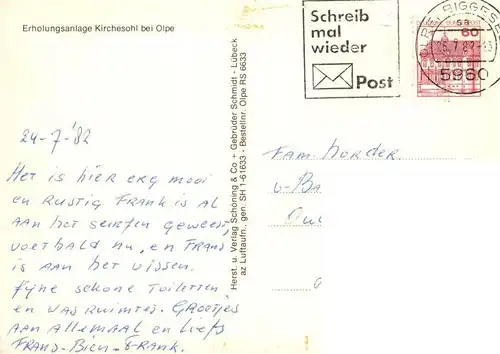 Erholungsanlage Kirchesohl bei Olpe
Schreib
mal
wieder
Post
BIGGESE
60
sa
26.7.82-13
5960
24-7-'82
Het is hier erg mooi
en rustig Frank is al
aan het surfen geweest,
voetbald nu, en Frans
is aan het vissen.
Fijne schone toiletten
en wasruimtes. Groetjes
aan allemaal en liefs
Frans-Bien-Frank.
Herst. u. Verlag Schöning & Co + Gebrüder Schmidt - Lübeck
az Luftaufn., gen. SH 1-61633 - Bestellnr. Olpe RS 6633
Fam